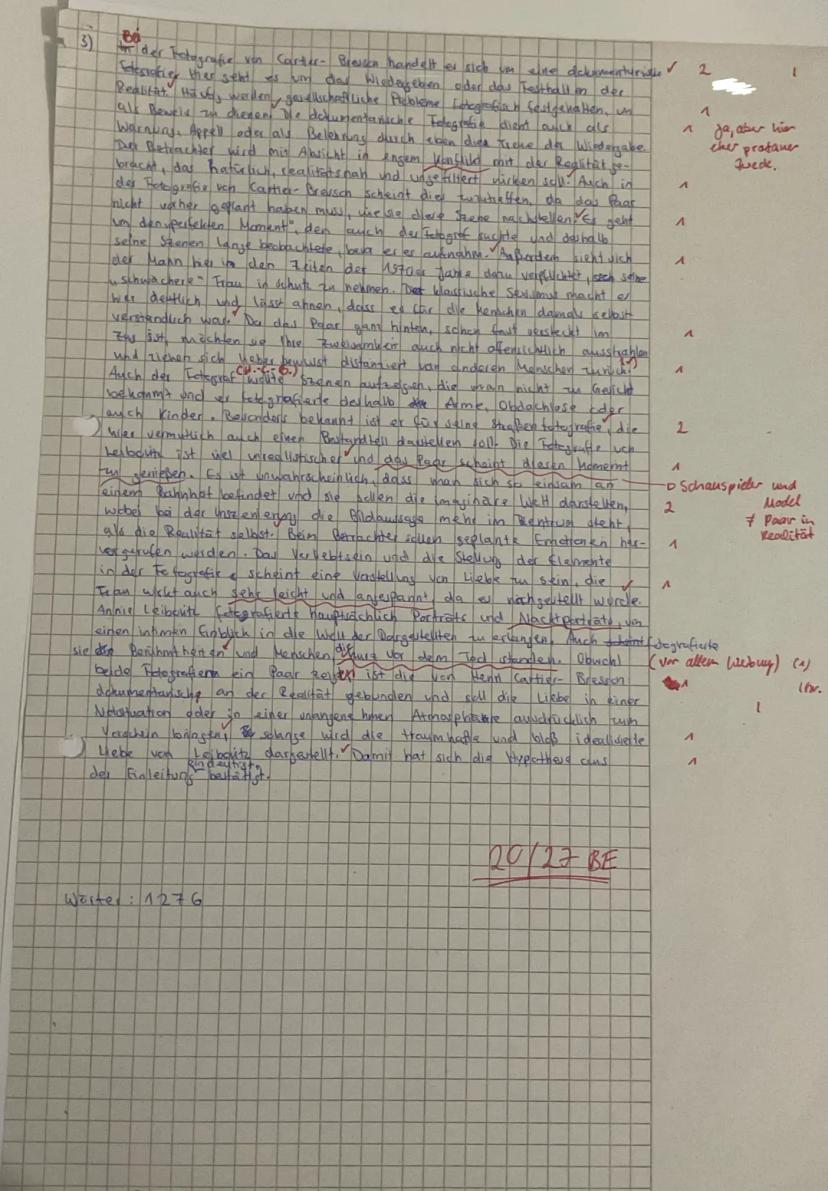 3) Bei der Fotografie von Cartier-Bresson handelt es sich um eine dokumentarische 2 1
Fotografie. Hier geht es um das Wiedergeben oder das Festhalten der
Realität. Häufig werden gesellschaftliche Probleme fotografisch festgehalten, um 1
als Beweis zu dienen. Die dokumentarische Fotografie dient auch als
Warnung, Appell oder als Belehrung durch eben diese der Wiedergabe. 1 Ja, aber hier
eher profaner
Zweck.
Der Betrachter wird mit Absicht in engem Konflikt mit der Realität ge-
bracht, das natürlich, realitätsnah und ungefiltert wirken soll. Auch in
der Fotografie von Cartier-Bresson scheint dies zuzutreffen, da das Paar 1
nicht vorher geplant haben muss, wie sie diese Szene nachstellen. Es geht
um den "perfekten Moment", den auch der Fotograf suchte und deshalb 1
seine Szenen lange beobachtete, bevor er es aufnahm. Außerdem sieht sich
der Mann hier in den Zeiten der 1970er Jahre dazu verpflichtet, seine 1
"schwächere" Frau in Schutz zu nehmen. Der klassische Sexismus macht er
hier deutlich und lässt ahnen, dass es für die Menschen damals selbst-
verständlich war. Da das Paar ganz hinten, schon fast versteckt im
Zug ist, möchten sie ihre Zweisamkeit auch nicht offensichtlich ausstrahlen 1
und ziehen sich lieber bewusst distanziert von anderen Menschen zurück.
Auch der Fotograf (H.-C.-B.) wollte Szenen aufzeigen, die man nicht zu Gesicht 1
bekommt und er fotografierte deshalb Arme, Obdachlose oder
auch Kinder. Besonders bekannt ist er für seine Straßenfotografie, die
hier vermutlich auch einen Bestandteil darstellen soll. Die Fotografie von 2
Leibovitz ist viel unrealistischer und das Paar scheint diesen Moment
zu genießen. Es ist unwahrscheinlich, dass man sich so einsam an 1
Schauspieler und
Model
≠ Paar in
Realität
einem Bahnhof befindet und sie sollen die imaginäre Welt darstellen,
wobei bei der Inszenierung die Bildaussage mehr im Zentrum steht, 2
als die Realität selbst. Beim Betrachter sollen geplante Emotionen her-
vorgerufen werden. Das Verliebtsein und die Stellung der Elemente 1
in der Fotografie scheint eine Vorstellung von Liebe zu sein, die
Frau wirkt auch sehr leicht und angespannt, da es nachgestellt wurde. 1
Annie Leibovitz fotografierte hauptsächlich Porträts und Nacktporträts, um
einen intimen Einblick in die Welt der Dargestellten zu erlangen. Auch fotografierte
sie Berühmtheiten und Menschen, die kurz vor dem Tod standen. Obwohl (vor allem Werbung) (1)
beide Fotografien ein Paar zeigen ist die von Henri Cartier-Bresson 1
dokumentarische an der Realität gebunden und soll die Liebe in einer
Notsituation oder in einer unangenehmen Atmosphäre ausdrücklich zum 1
Vorschein bringen, solange wird die traumhafte und bloß idealisierte 1
Liebe von Leibovitz dargestellt. Damit hat sich die Hypothese aus 1
der Einleitung eindeutig bestätigt.
20/27 BE
Wörter: 1276